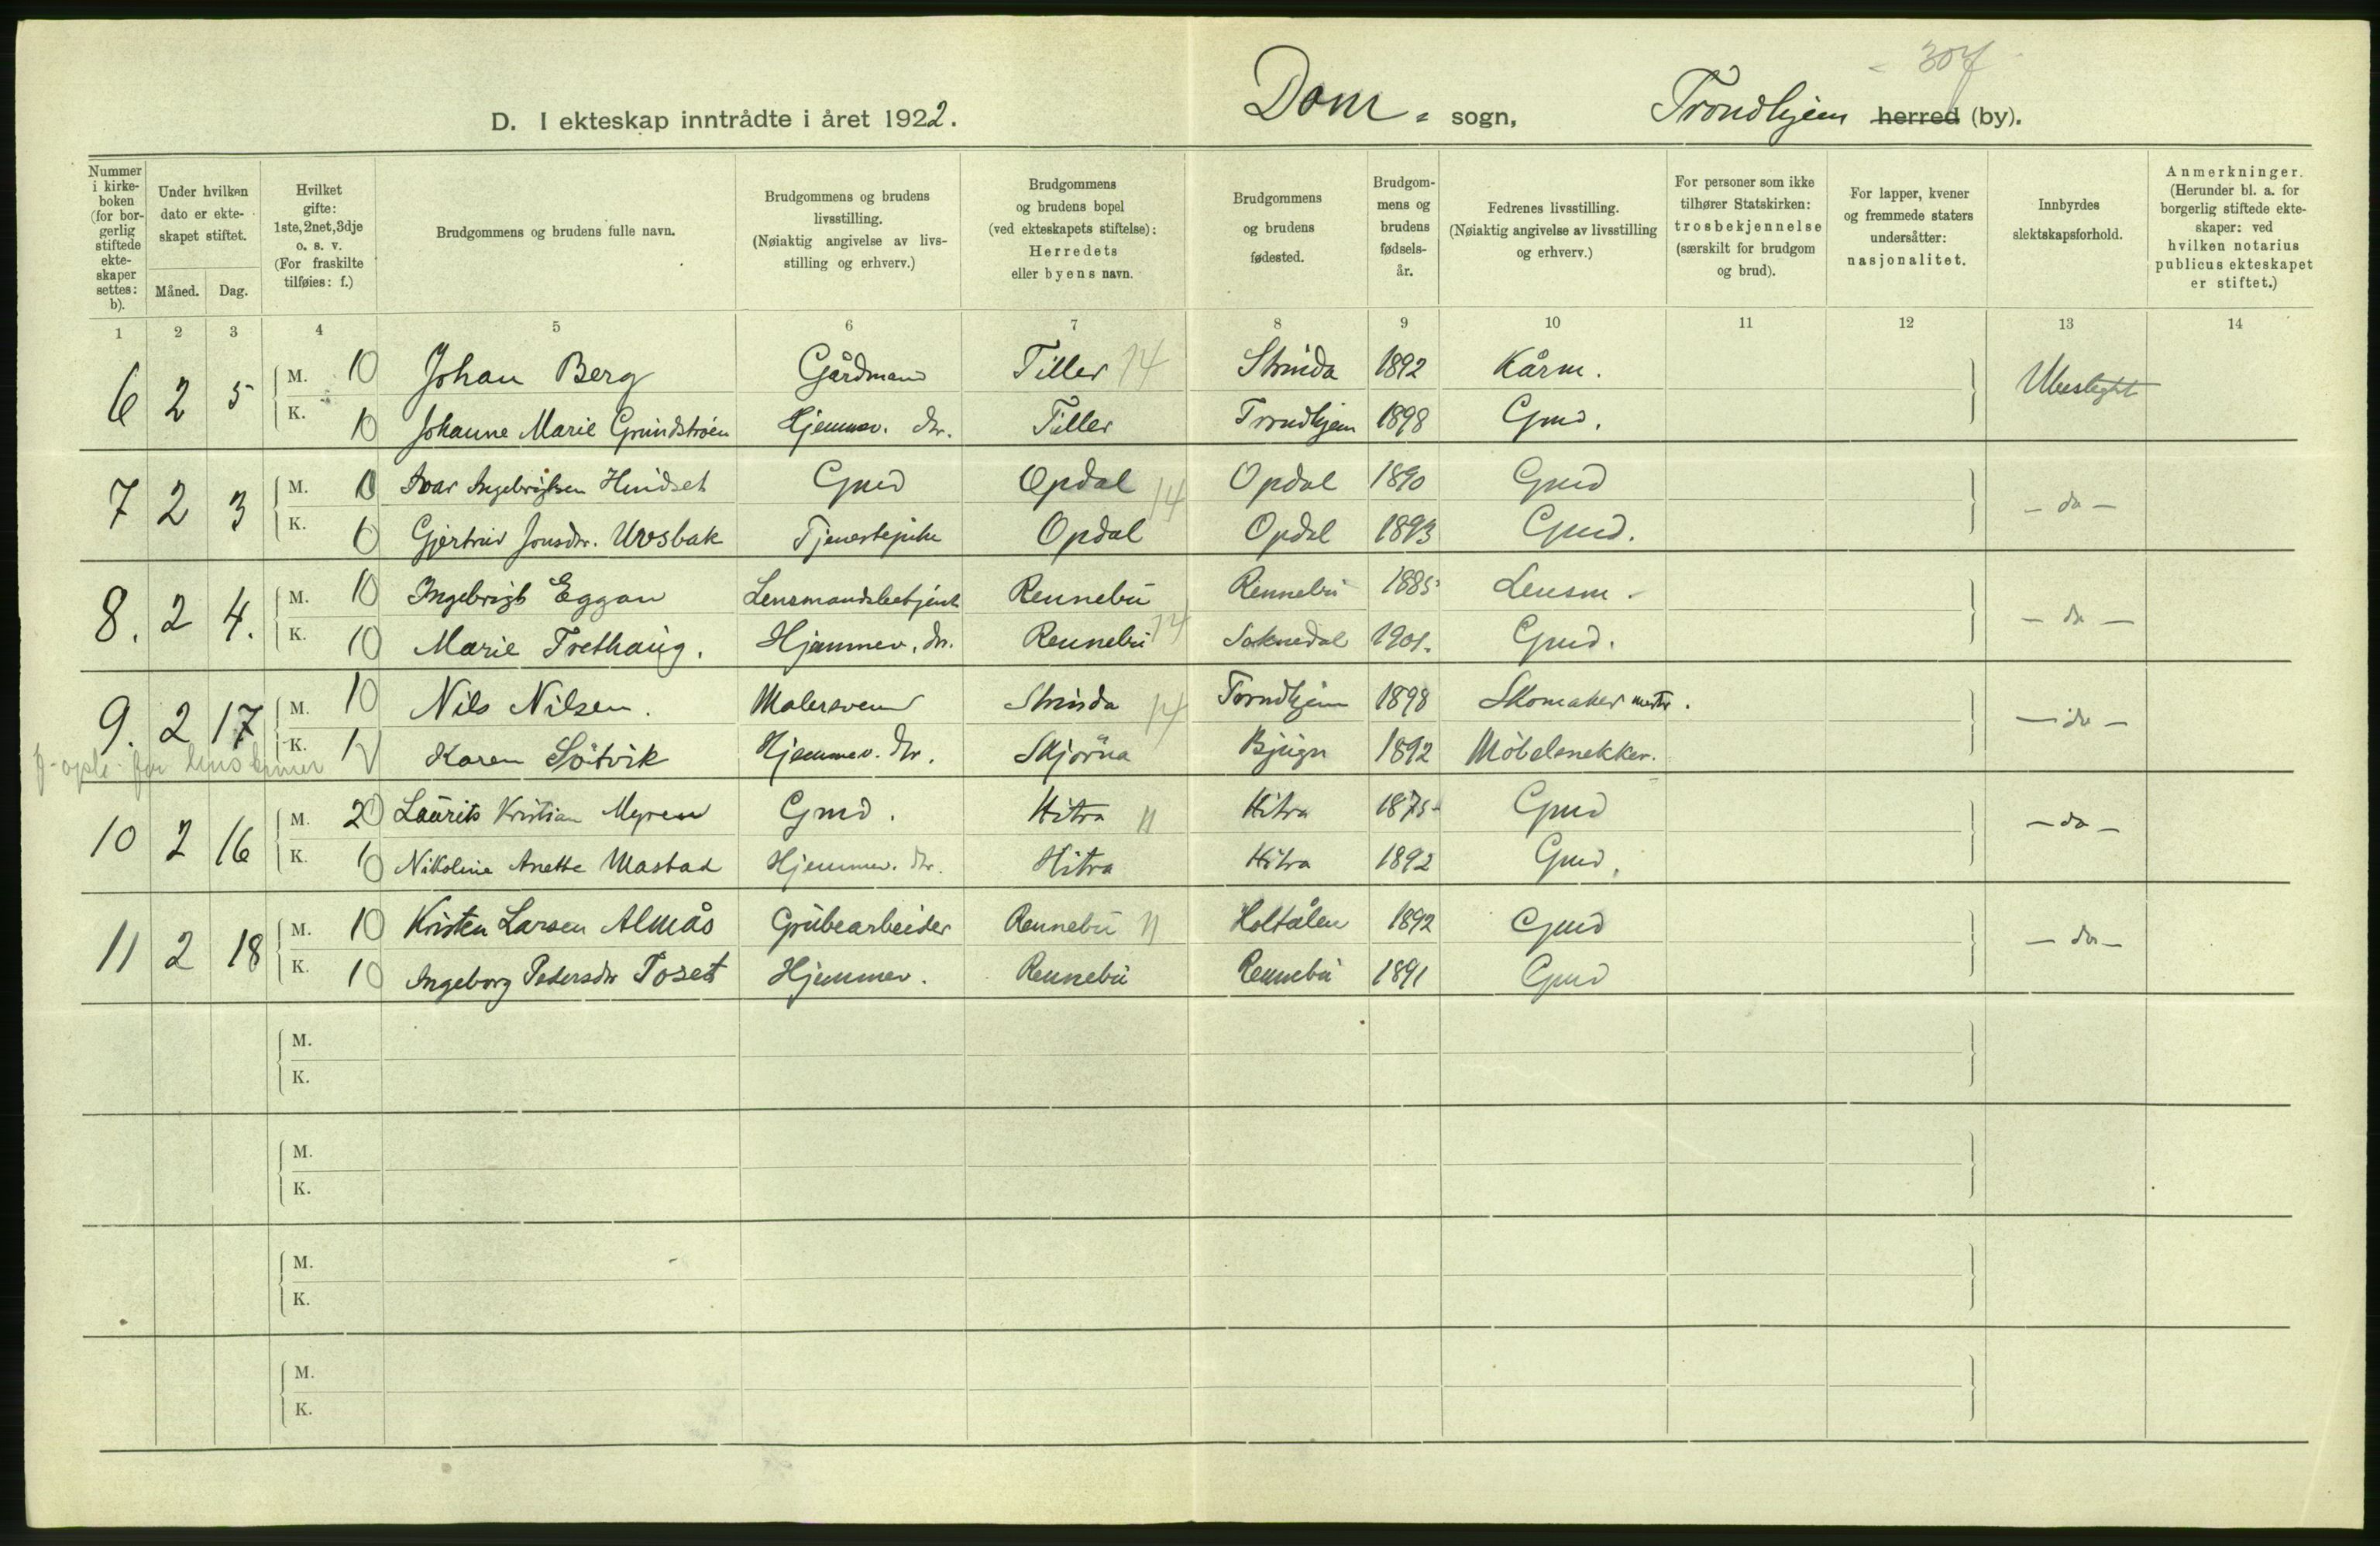 307
D. I ekteskap inntrådte i året 1922. Dom- sogn, Trondhjem herred (by).
Nummer i kirke-boken (for bor-gerlig stiftede ekte-skaper settes: b).
Under hvilken dato er ekte-skapet stiftet.
Måned. Dag.
Hvilket gifte: 1ste, 2net, 3dje o. s. v. (For fraskilte tilføies: f.)
Brudgommens og brudens fulle navn.
Brudgommens og brudens livsstilling. (Nøiaktig angivelse av livs-stilling og erhverv.)
Brudgommens og brudens bopel (ved ekteskapets stiftelse): Herredets eller byens navn.
Brudgommens og brudens fødested.
Brudgom-mens og brudens fødsels-år.
Fedrenes livsstilling. (Nøiaktig angivelse av livsstilling og erhverv.)
For personer som ikke tilhører Statskirken: trosbekjennelse (særskilt for brudgom og brud).
For lapper, kvener og fremmede staters undersåtter: nasjonalitet.
Innbyrdes slektskapsforhold.
Anmerkninger. (Herunder bl. a. for borgerlig stiftede ekte-skaper: ved hvilken notarius publicus ekteskapet er stiftet.)
1 2 3 4 5 6 7 8 9 10 11 12 13 14
6 2 5 M. 10 Johan Berg Gårdmand Tiller 14 Strinda 1892 Kårm. Ubeslegtet
K. 10 Johanne Marie Grundstrøm Hjemmev. dr. Tiller Trondhjem 1898 Gmd.
7 2 3 M. 10 Ivar Ingebrigtsen Hindset Gmd Opdal 14 Opdal 1890 Gmd - do -
K. 10 Gjertrud Jonsdr. Uvsbak Tjenestepike Opdal Opdal 1893 Gmd.
8. 2 4. M. 10 Ingebrigt Eggan Lensmandsbetjent Rennebu Rennebu 1885 Lensm. - do -
K. 10 Marie Trethaug. Hjemmev. dr. Rennebu 14 Soknedal 1901. Gmd.
9. 2 17 M. 10 Nils Nilsen. Malersvend Strinda 14 Trondhjem 1898 Skomakermestr. - do -
K. 1 Karen Sötvik Hjemmev. dr. Skjörna Bjugn 1892 Möbelsnekker.
10 2 16 M. 20 Laurits Kristian Myren Gmd. Hitra 11 Hitra 1875 Gmd - do -
K. 10 Nikoline Anette Mastad Hjemmev. dr. Hitra Hitra 1892 Gmd.
11 2 18 M. 10 Kristen Larsen Almås Grubearbeider Rennebu 11 Holtålen 1892 Gmd - do -
K. 10 Ingeborg Pedersdr Toset Hjemmev. Rennebu Rennebu 1891 Gmd
M.
K.
M.
K.
M.
K.
M.
K.